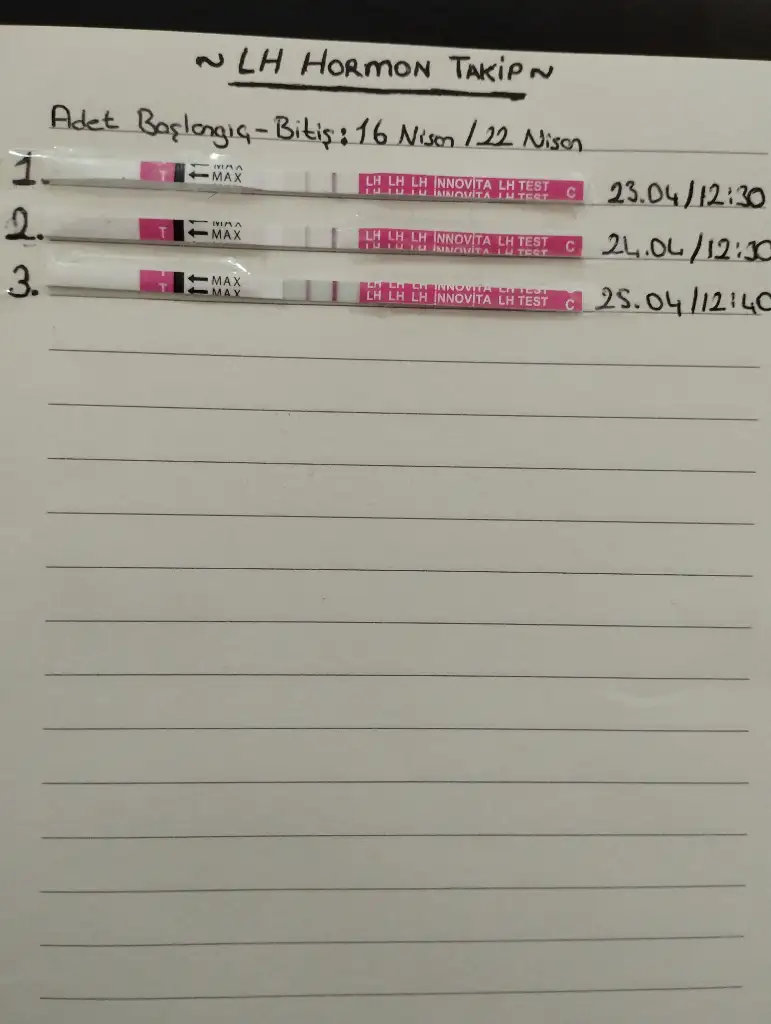 ~ LH HORMON TAKİP ~
Adet Başlangıç - Bitiş : 16 Nisan / 22 Nisan
1. T MAX LH LH LH INNOVITA LH TEST C 23.04/12:30
2. T MAX LH LH LH INNOVITA LH TEST C 24.04/12:30
3. T MAX LH LH LH INNOVITA LH TEST C 25.04/12:40